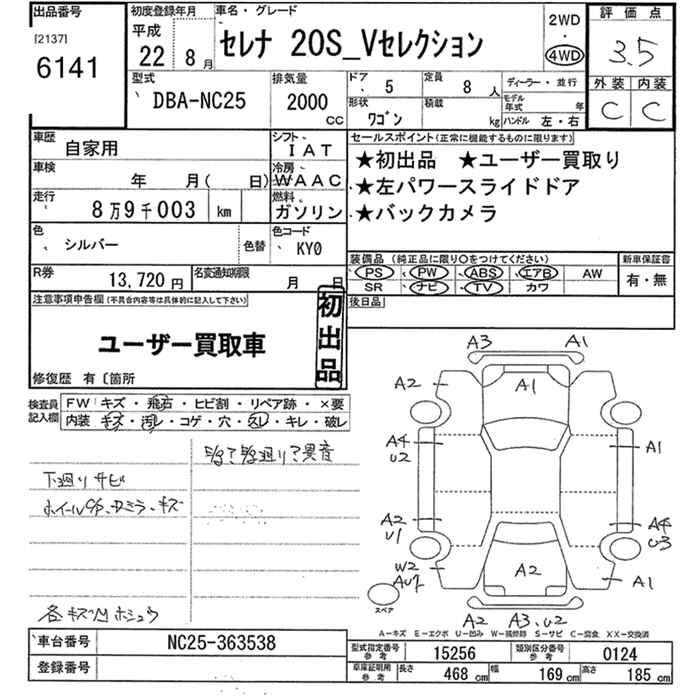 出品番号
[2137]
6141
初度登録年月
平成
22 8月
車名・グレード
セレナ 20S_Vセレクション
2WD
・
4WD
評価点
3.5
外装 内装
C C
型式
DBA-NC25
排気量
2000
CC
ドア 5
定員 8人
形状
ワゴン
積載
kg
ディーラー・並行
モデル年式 年
ハンドル 左・右
車歴
自家用
シフト
IAT
車検
年 月( 日)
冷房
WAAC
走行
8万9千003 km
燃料
ガソリン
色
シルバー
色替
色コード
KY0
R券
13,720円
名変通知期限
月 日
セールスポイント(正常に機能するものに限ります)
★初出品 ★ユーザー買取り
★左パワースライドドア
★バックカメラ
装備品(純正品に限り○をつけてください)
PS PW ABS エアB AW
SR ナビ TV カワ
新車保証書
有・無
後日品
注意事項申告欄(不具合内容等は具体的に記入して下さい)
ユーザー買取車
初出品
修復歴 有〔箇所
検査員記入欄
FW キズ・飛石・ヒビ割・リペア跡・×要
内装 キズ・汚レ・コゲ・穴・スレ・キレ・破レ
下廻りサビ
A3 A1
A2 A1
A4
U2
A1
A2
U1
A4
U3
W2
A2
A1
スペア
A2 A3.U2
A-キズ E-エクボ U-凹み W-補修跡 S-サビ C-腐食 XX-交換済
車台番号
NC25-363538
登録番号
型式指定番号
参考
15256
類別区分番号
参考
0124
車庫証明用
参考
長さ 468cm 幅 169cm 高さ 185cm